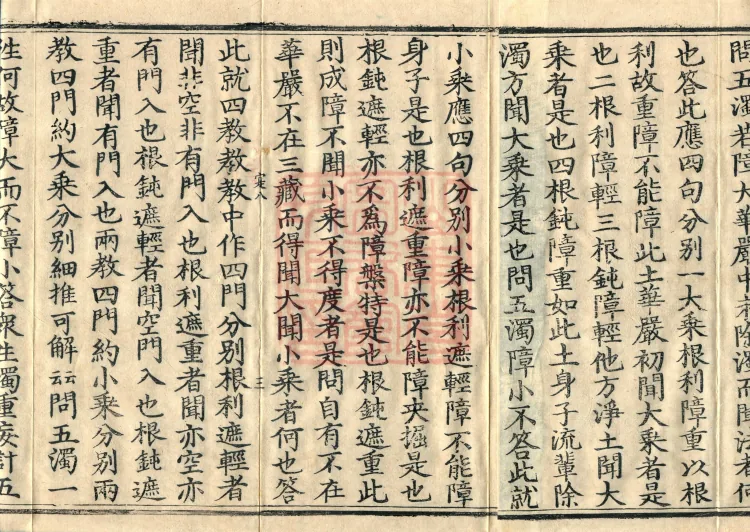 問五濁若障大華嚴中若除濁而聞法者何
也答此應四句分別一大乘根利障重以根
利故重障不能障此土華嚴初聞大乘者是
也二根利障輕三根鈍障輕他方淨土聞大
乘者是也四根鈍障重如此土身子流輩除
濁方聞大乘者是也問五濁障小不答此就
小乘應四句分別小乘根利遮輕障不能障
身子是也根利遮重障亦不能障央掘是也
根鈍遮輕亦不為障槃特是也根鈍遮重此
則成障不聞小乘不得度者是問自有不在
華嚴不在三藏而得聞大聞小乘者何也答
此就四教教教中作四門分別根利遮輕者
聞非空非有門入也根利遮重者聞亦空亦
有門入也根鈍遮輕者聞空門入也根鈍遮
重者聞有門入也兩教四門約小乘分別兩
教四門約大乘分別細推可解云云問五濁一
性何故障大而不障小答眾生濁重妄計五
三